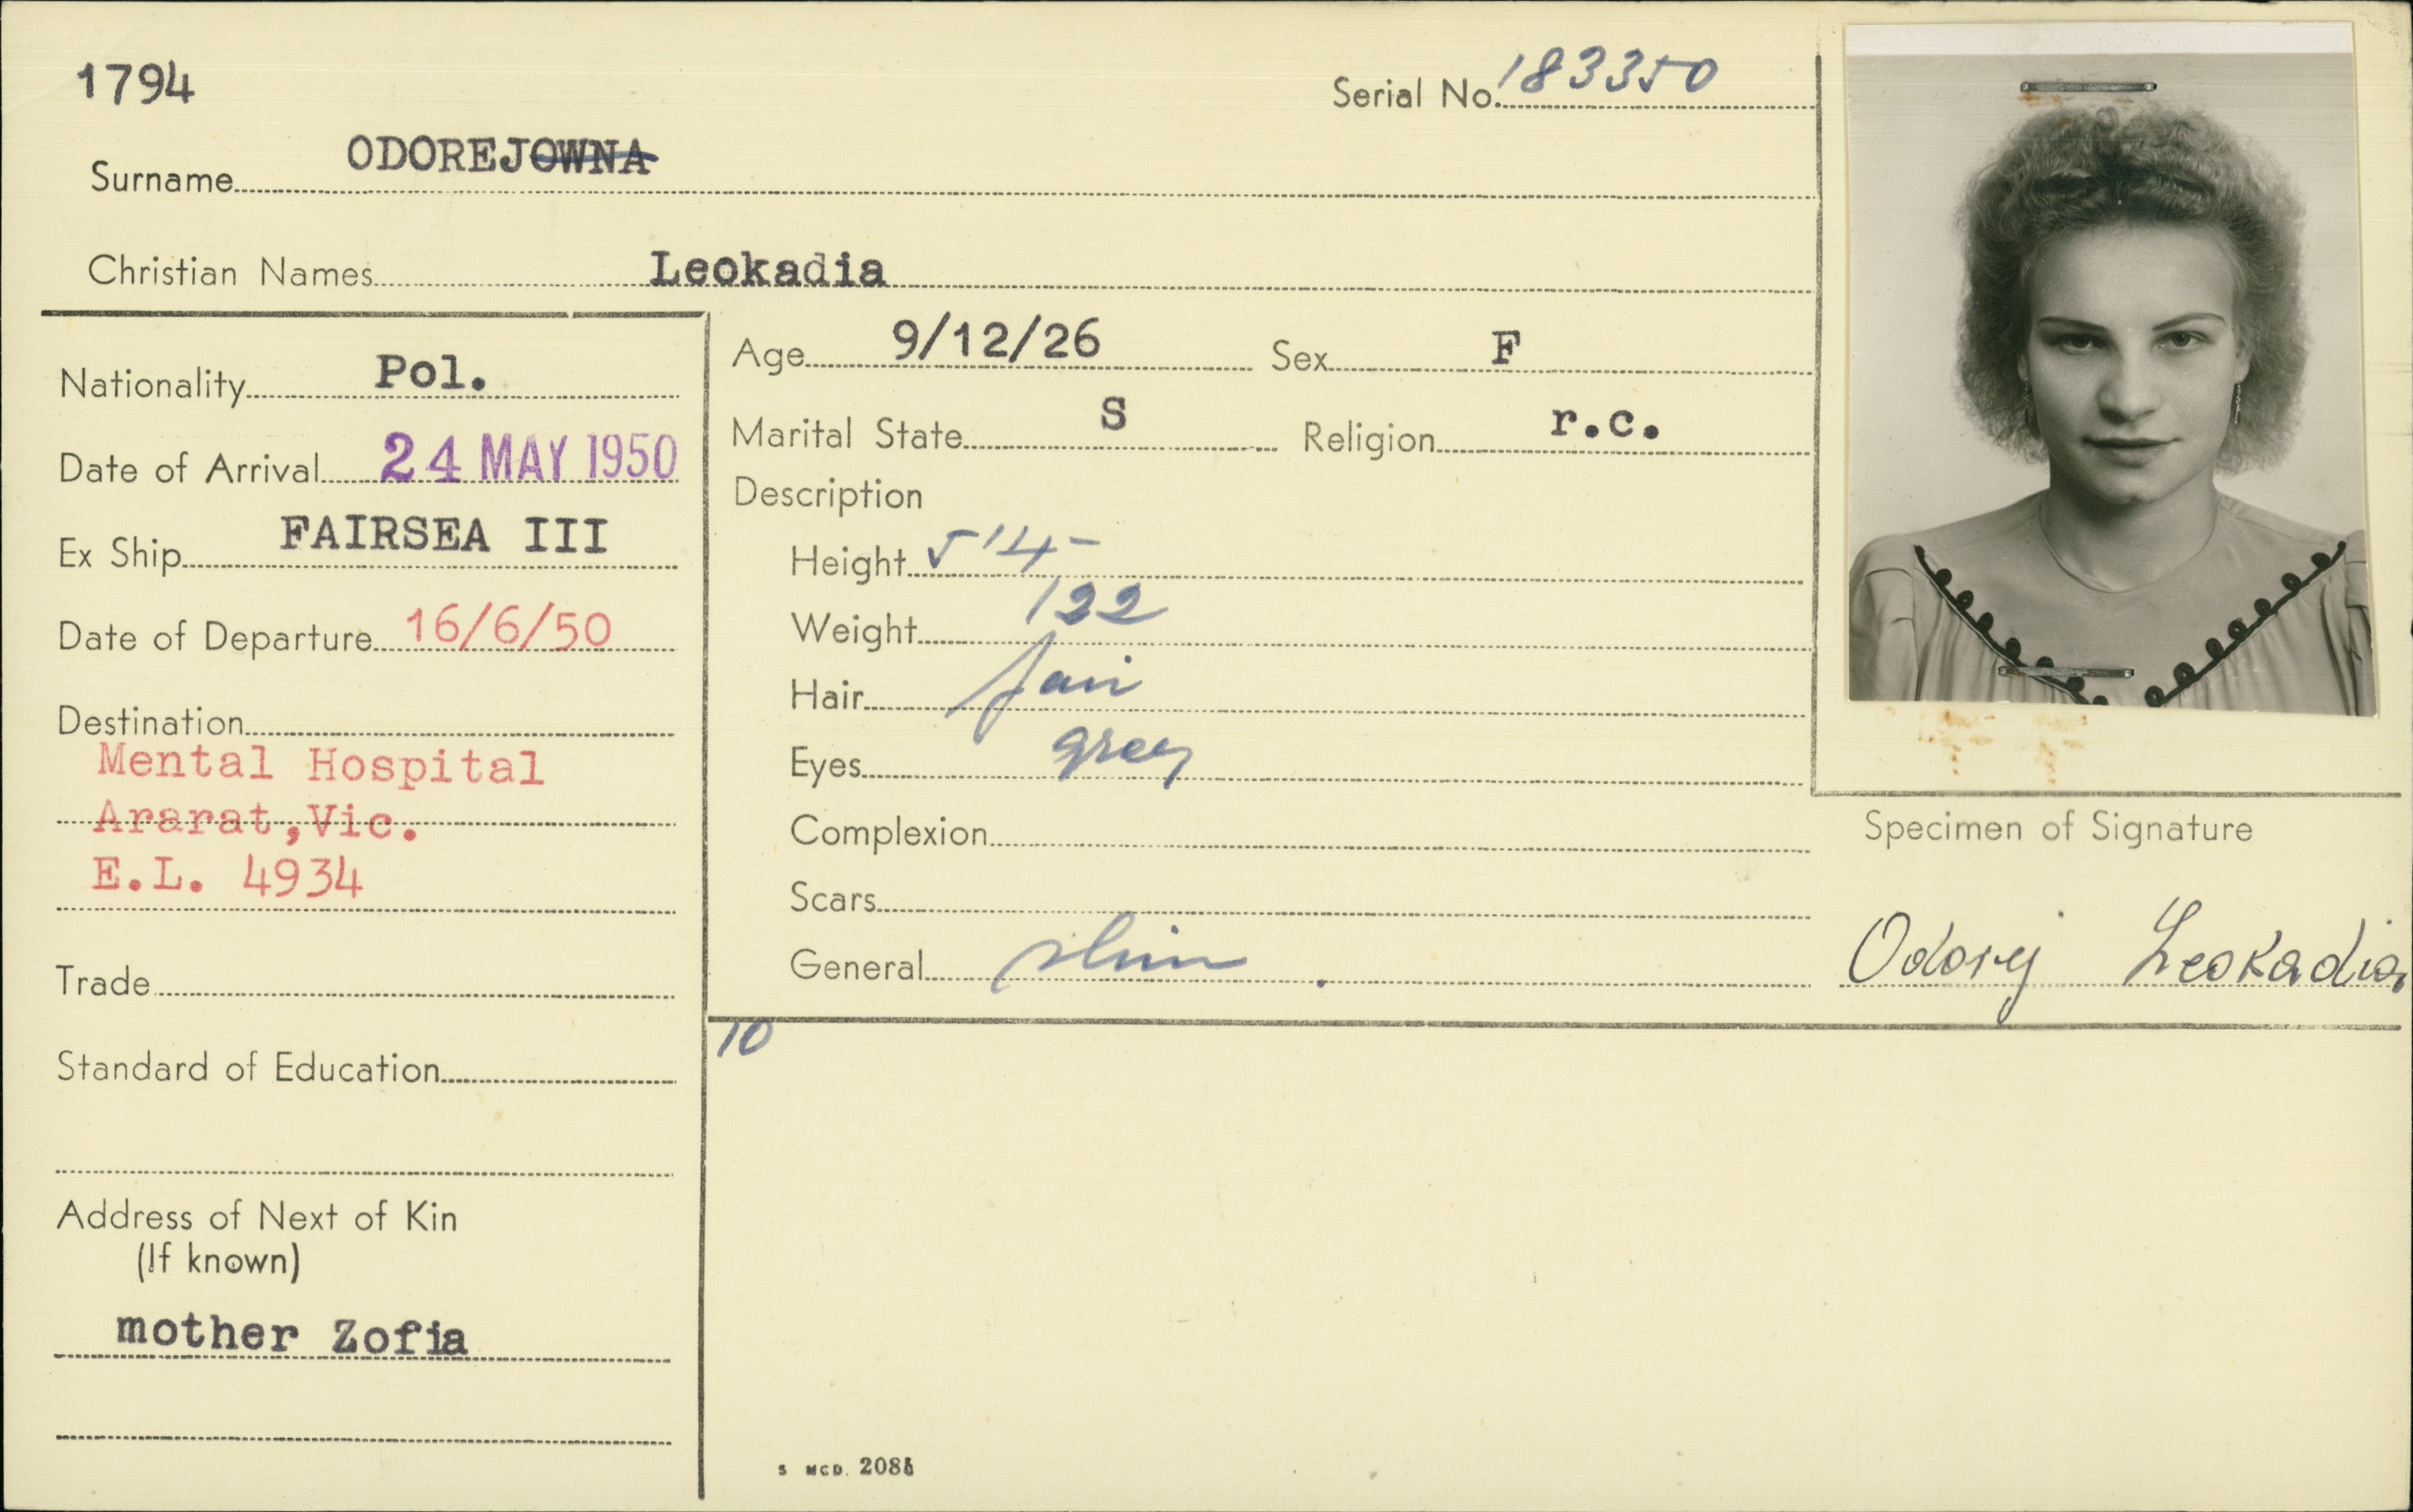 1794
Serial No. 183350
Surname ODOREJOWNA
Christian Names Leokadia
Nationality Pol.
Date of Arrival 24 MAY 1950
Ex Ship FAIRSEA III
Date of Departure 16/6/50
Destination
Mental Hospital
Ararat,Vic.
E.L. 4934
Trade
Standard of Education
Address of Next of Kin
(If known)
mother Zofia
Age 9/12/26 Sex F
Marital State S Religion r.c.
Description
Height 5'4-
Weight 122
Hair fair
Eyes grey
Complexion
Scars
General slim .
10
Specimen of Signature
Odorej Leokadia
S MCD.